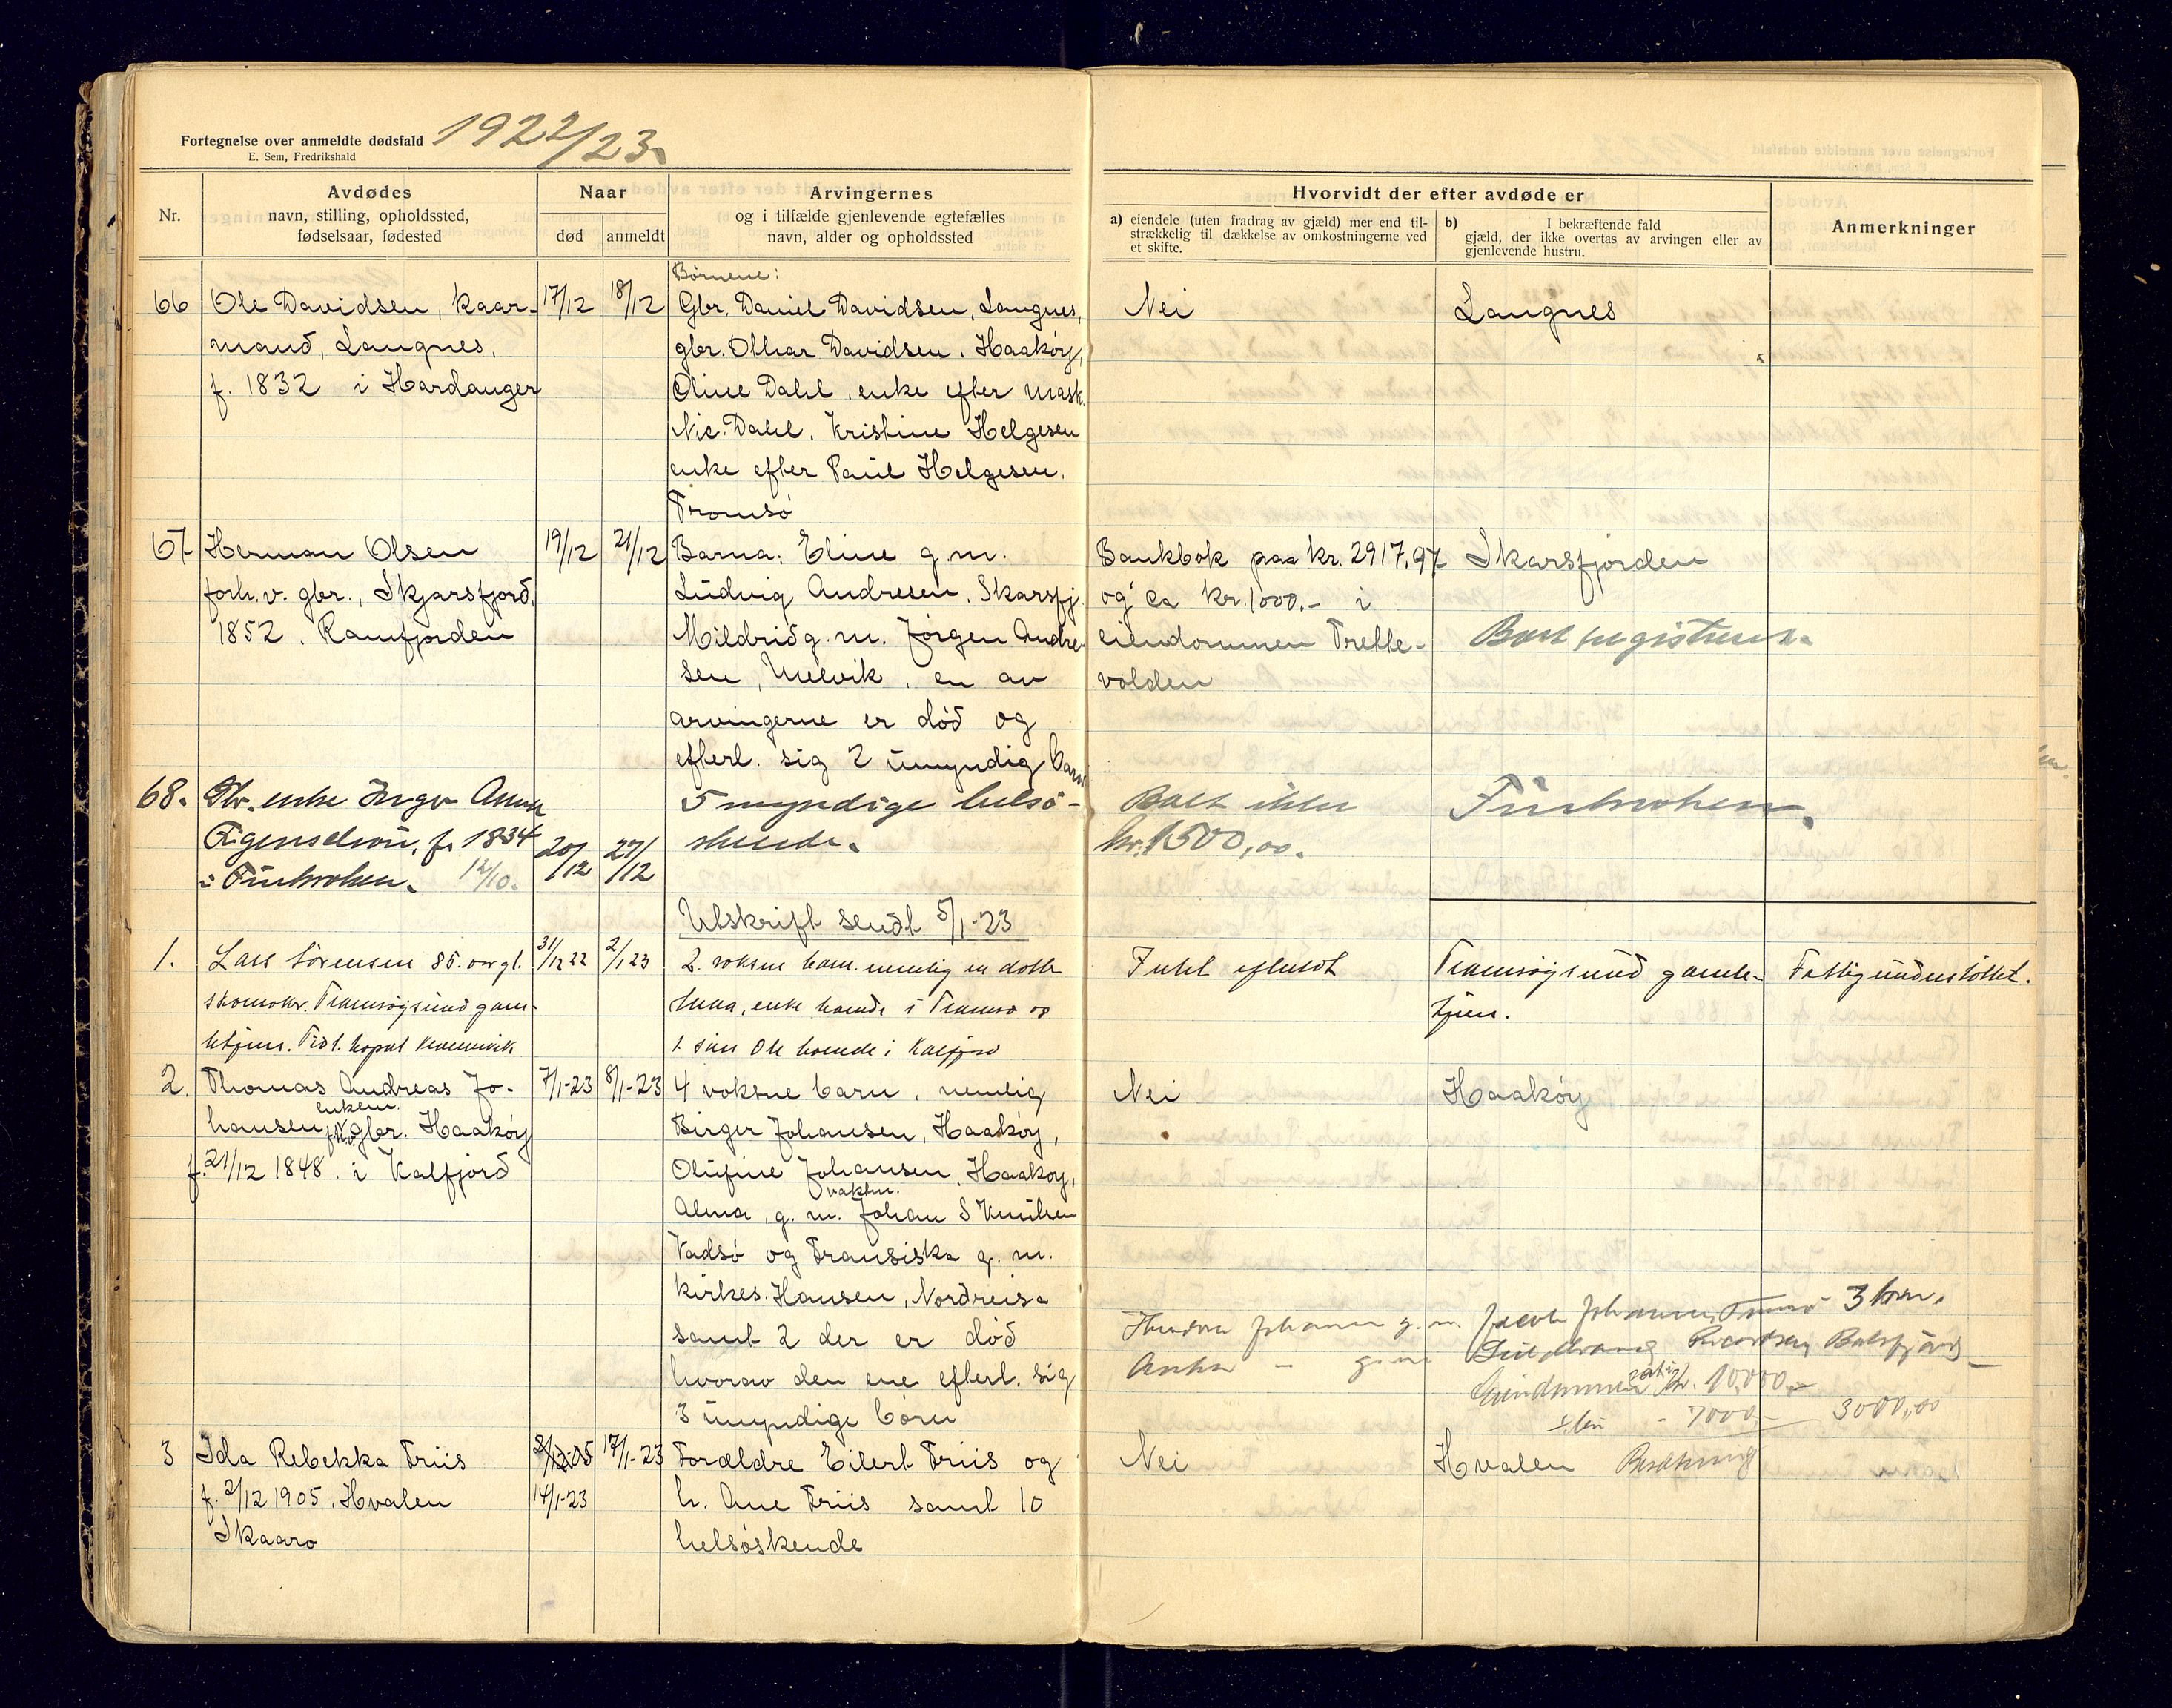 Fortegnelse over anmeldte dødsfald 1922/23.
E. Sem, Fredrikshald
Nr.
Avdødes
navn, stilling, opholdssted,
fødselsaar, fødested
Naar
død
anmeldt
Arvingernes
og i tilfælde gjenlevende egtefælles
navn, alder og opholdssted
Hvorvidt der efter avdøde er
a) eiendele (uten fradrag av gjæld) mer end til-
strækkelig til dækkelse av omkostningerne ved
et skifte.
b) I bekræftende fald
gjæld, der ikke overtas av arvingen eller av
gjenlevende hustru.
Anmerkninger
66
Ole Davidsen, kaar-
mand, Langnes,
f. 1832 i Hardanger
17/12
18/12
Børnene:
Gbr. Daniel Davidsen, Langnes,
gbr. Othar Davidsen, Haakøy,
Oline Dahl, enke efter mask.
Nic. Dahl, Kristine Helgesen
enke efter Paul Helgesen,
Tromsø
Nei
Langnes
67
Herman Olsen
forh.v. gbr., Skjarsfjord,
1852, Ramfjorden
19/12
21/12
Barna: Eline g.m.
Ludvig Andresen, Skarsfj.
Mildrid g.m. Jørgen Andre-
sen, Mielvik, en av
arvingerne er død og
efterl. sig 2 umyndig barn
Bankbok paa kr. 2917,97
og ca kr. 1000.- i
eiendommen Trette-
volden
Skarsfjorden
Boet registreres.
68.
Gbr. enke Inger Anna
f. 1834
i Finkroken. 12/10.
20/12
27/12
5 myndige helsø-
skende.
Boet ikke
kr. 1500,00.
Finkroken.
Utskrift sendt 5/1-23
1.
Lars Sørensen 85. aar gl.
skomaker. Tromsøysund gam-
lehjem. Tidl.
31/12 22
2/1 23
2. voksne barn. nemlig en datter
enke boende i Tromsø og
1. søn Ole boende i Kalfjord
Intet efterladt
Tromsøysund gamle-
hjem.
Fattigunderstøttet.
2.
Thomas Andreas Jo-
enkem.
hansen, fhv. gbr. Haakøy
f. 21/12 1848. i Kalfjord
7/1-23
8/1-23
4 voksne barn, nemlig
Birger Johansen, Haakøy,
Olufine Johansen, Haakøy,
vaktm.
Alma, g. m. Johan S Knutsen
Vadsø og Fransiska g. m.
kirkes. Hansen, Nordreisa
samt 2 der er død
hvorav den ene efterl. sig
3 umyndige børn
Nei
Haakøy
Johansen g. m. Jacob Johansen, Tromsø 3 barn.
Balsfjord
Eiendommen kr. 10,000,-
- 7000,- 3000,00
3
Ida Rebekka Friis
f. 2/12 1905, Hvalen
Skaarø
2/12-05
14/1-23
17/1-23
Forældre Eilert Friis og
h. Ane Friis samt 10
helsøskende
Nei
Hvalen